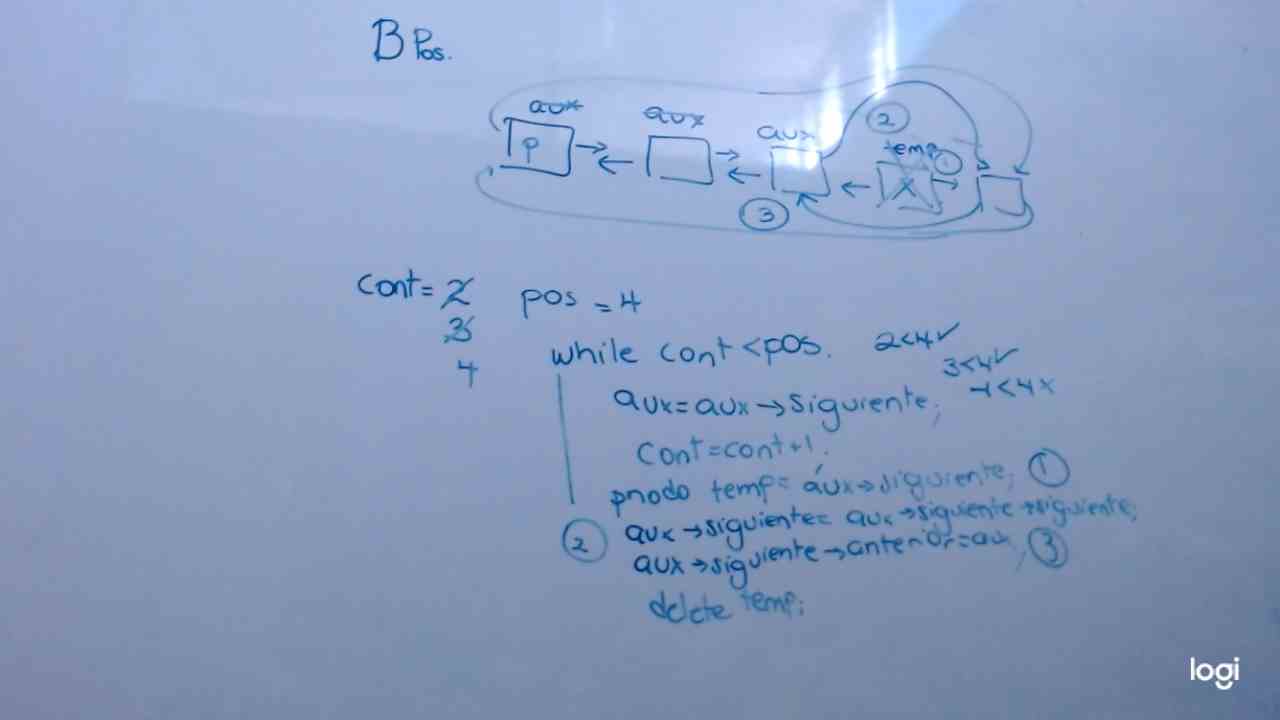 B Pos.
aux aux aux
②
temp ①
P X
③
cont= 2 pos = 4
3
4
while cont <pos. 2<4✓
3<4✓
4<4 x
aux=aux→siguiente;
cont=cont+1.
pnodo temp= aux→siguiente; ①
② aux→siguiente= aux→siguiente→siguiente;
aux→siguiente→anterior=aux; ③
delete temp;
logi